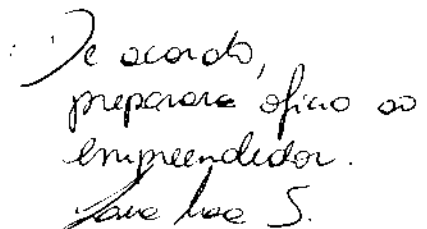 De acordo,
preparar ofício ao
empreendedor.
S.